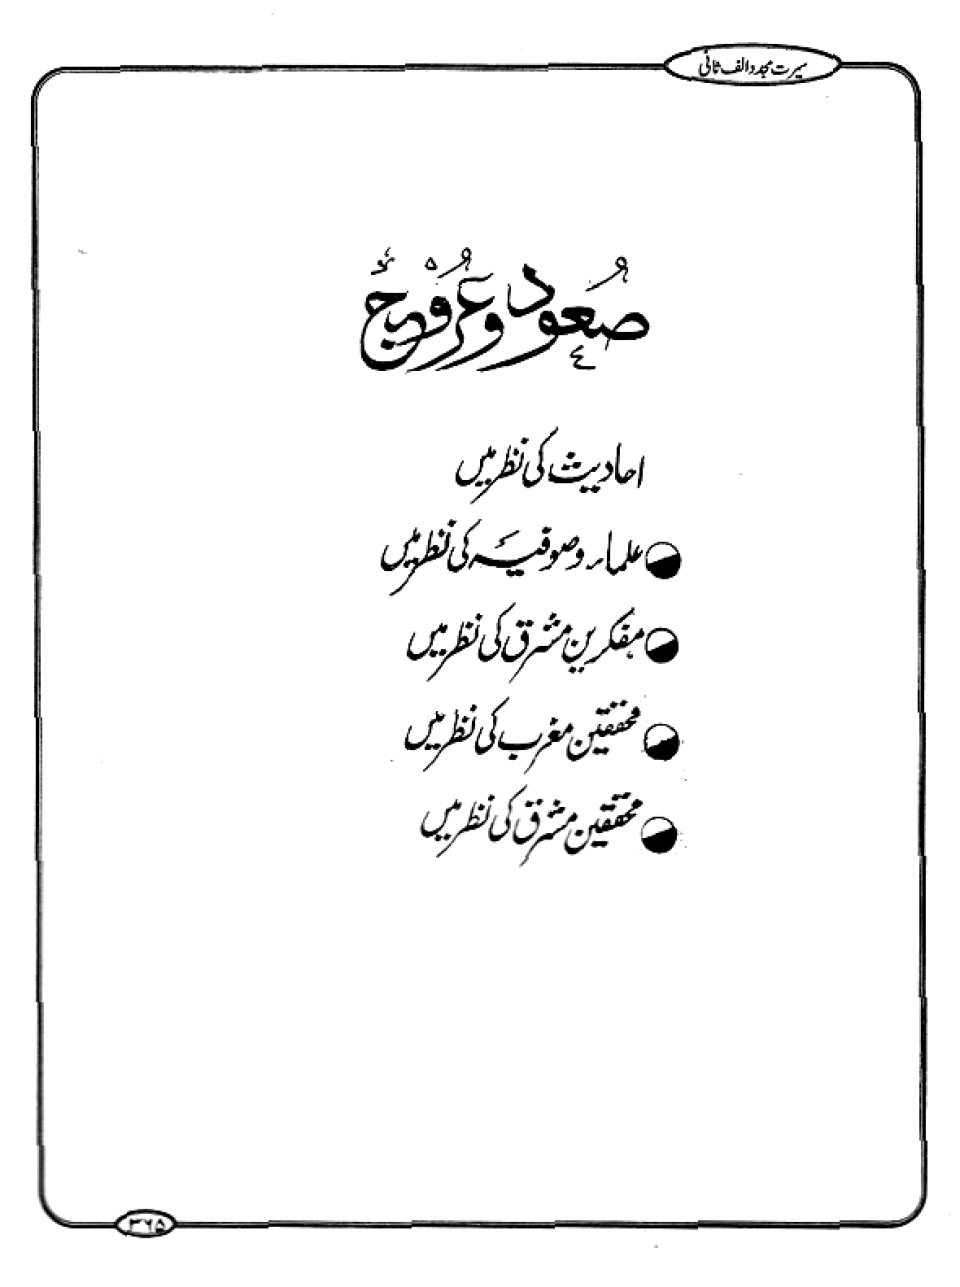 سیرت مجدد الف ثانی
صُعود و عُروج
احادیث کی نظر میں
علماء و صوفیہ کی نظر میں
مفکرین مشرق کی نظر میں
محققین مغرب کی نظر میں
محققین مشرق کی نظر میں
۳۶۵